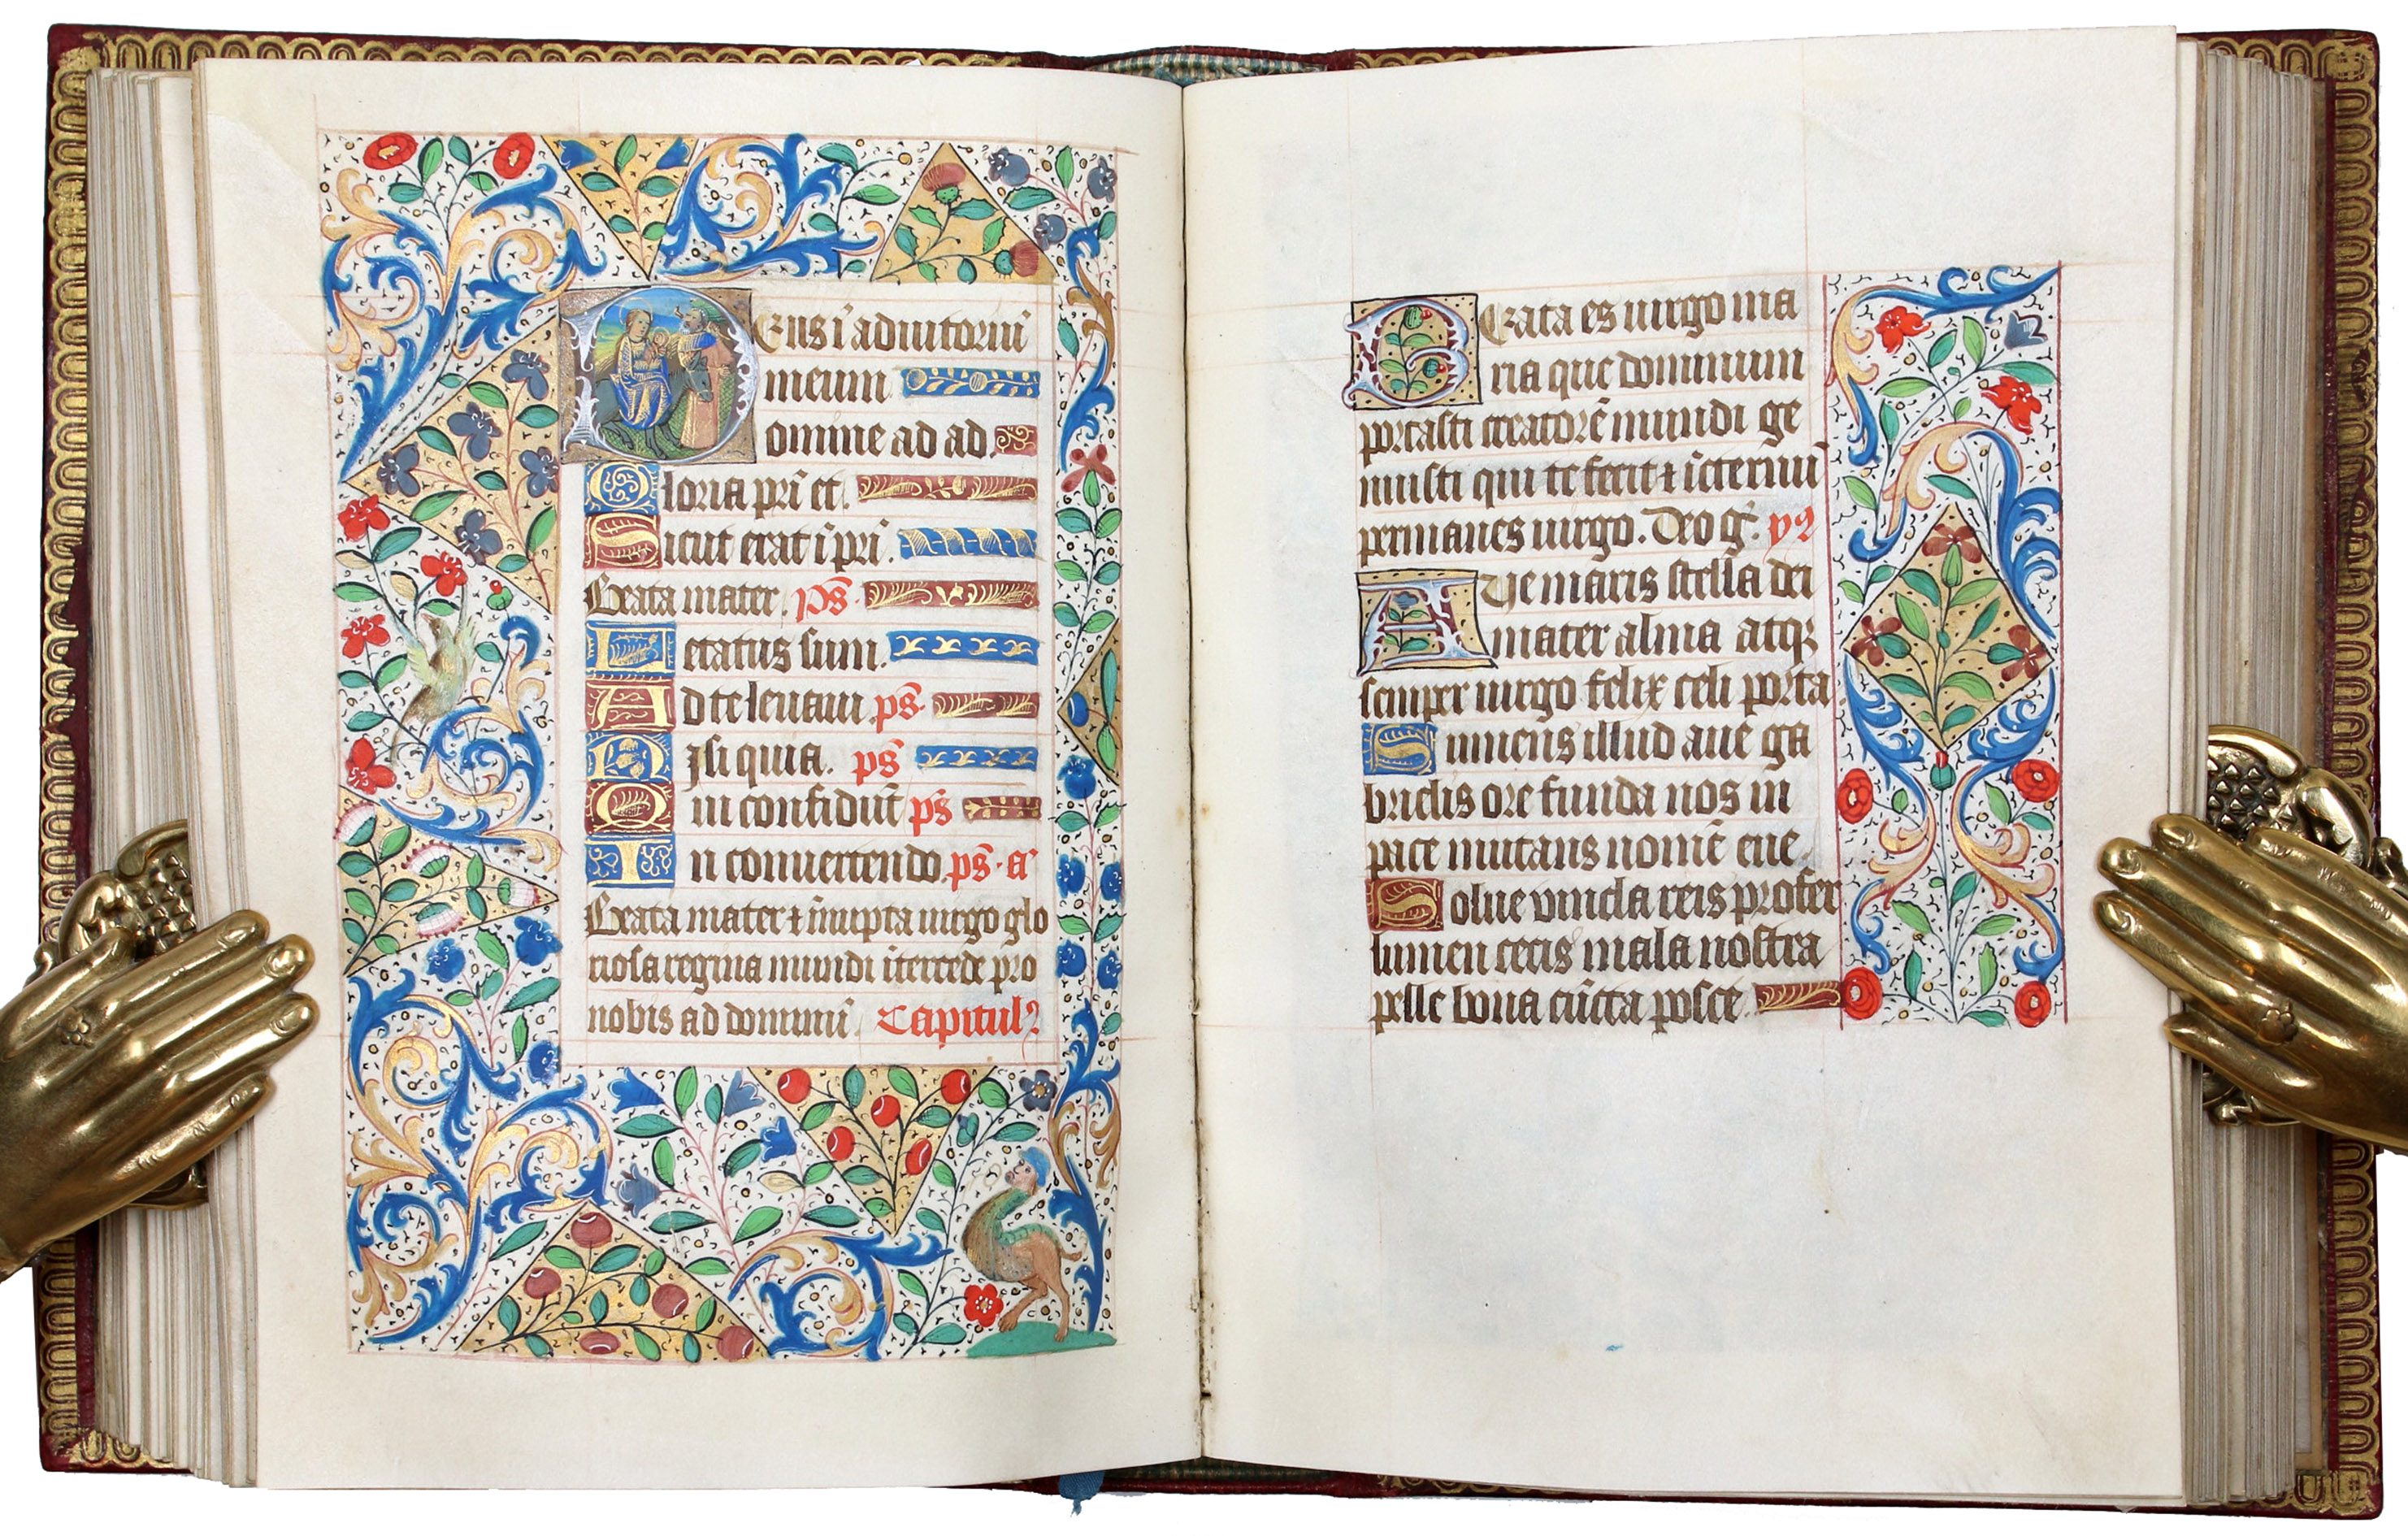 Deus ī adiutoriū
meum
omine ad ad.
Gloria prī et.
Sicut erat ī prī.
Beata mater. ps̄
Letatus sum.
Ad te leuaui. ps̄.
Nisi quia. ps̄
Qui confidūt ps̄
In conuertendo. ps̄. a
Beata mater ⁊ īnupta uirgo glo
riosa regina mundi ītercede pro
nobis ad dominū. Capitulꝫ
Beata es uirgo ma
ria que dominum
portasti creatorē mundi ge
nuisti qui te fecit ⁊ īeternū
permanes uirgo. Deo g̃. yꝰ
Aue maris stella dei
mater alma atqꝫ
semper uirgo felix celi porta.
Sumens illud aue ga
brielis ore funda nos in
pace mutans nomē eue.
Solue vincla reis profer
lumen cecis mala nostra
pelle bona cūcta posce.